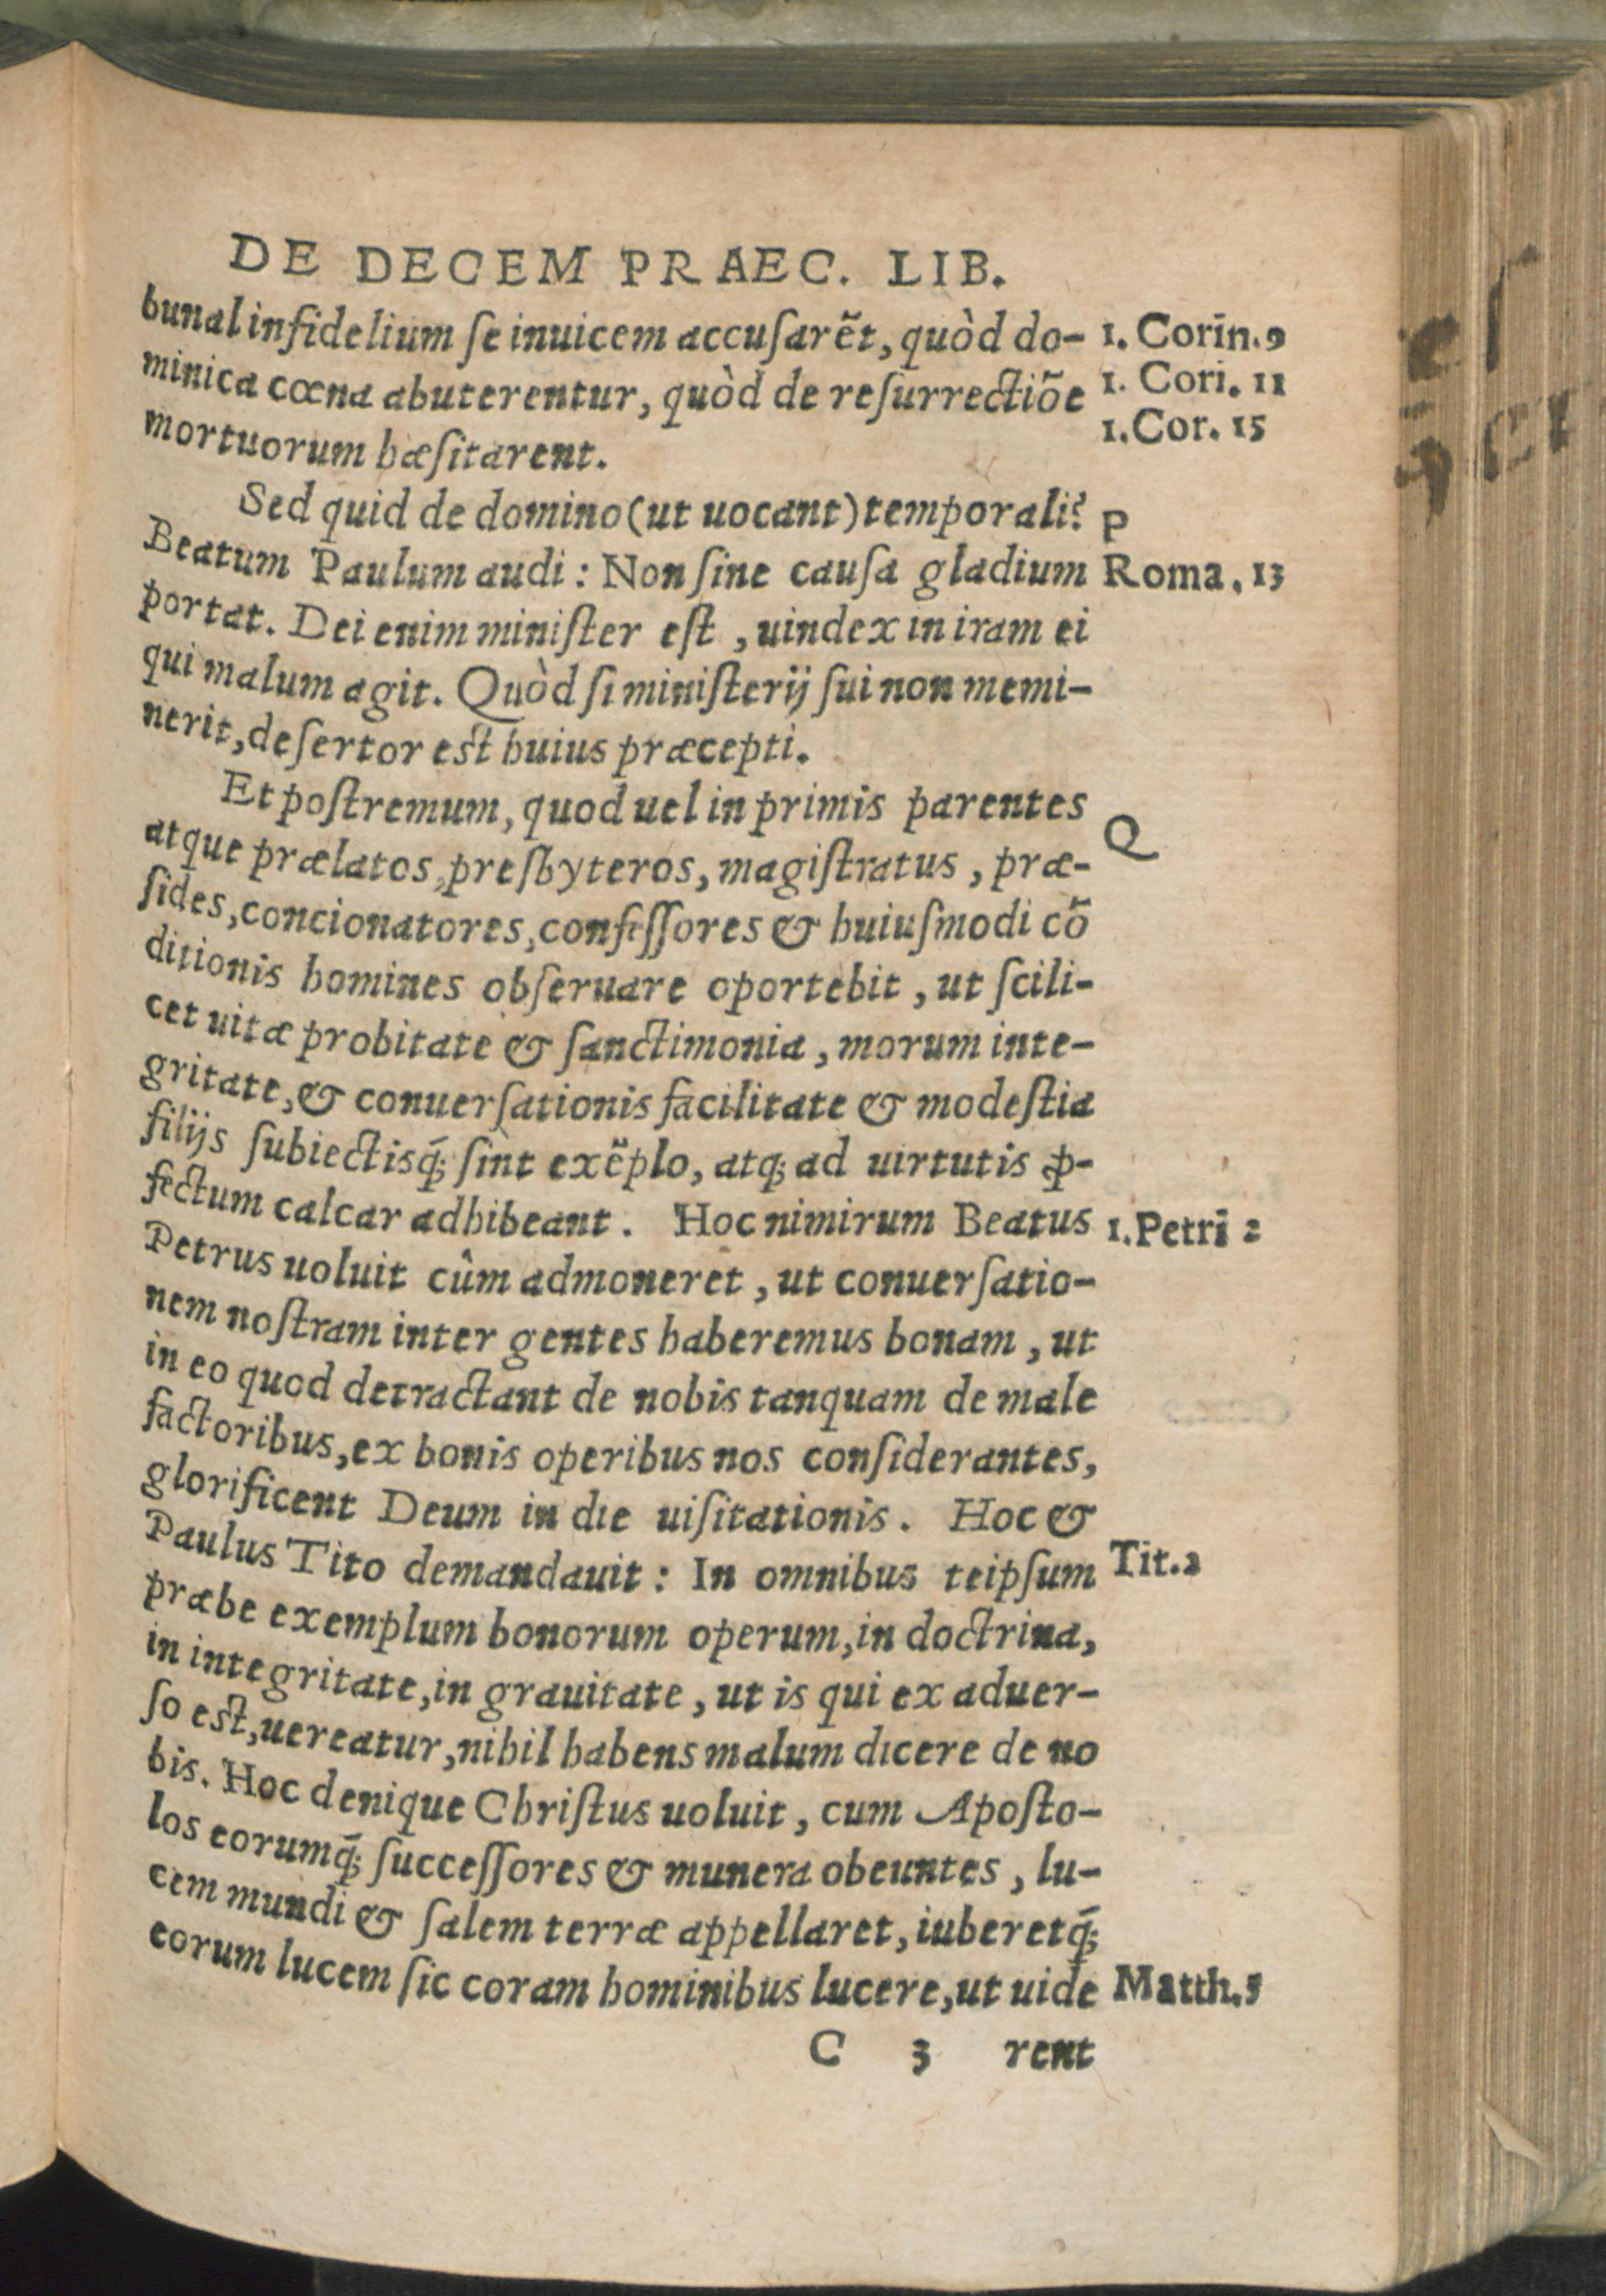 DE DECEM PRAEC. LIB.
bunal infidelium ſe inuicem accuſarẽt, quòd do-
minica cœna abuterentur, quòd de reſurrectiõe
mortuorum hæſitarent.
1. Corin. 9
1. Cori. 11
1. Cor. 15
Sed quid de domino (ut uocant) temporali?
P
Beatum Paulum audi: Non ſine cauſa gladium
Roma. 13
portat. Dei enim miniſter eſt, uindex in iram ei
qui malum agit. Quòd ſi miniſterij ſui non memi-
nerit, deſertor est huius præcepti.
Et poſtremum, quod uel in primis parentes
Q
atque prælatos, preſbyteros, magiſtratus, præ-
ſides, concionatores, confeſſores & huiuſmodi cõ
ditionis homines obſeruare oportebit, ut ſcili-
cet uitæ probitate & ſanctimonia, morum inte-
gritate, & conuerſationis facilitate & modeſtia
filijs ſubiectisq́; ſint exẽplo, atq; ad uirtutis ꝓ-
fectum calcar adhibeant. Hoc nimirum Beatus
1. Petri 2
Petrus uoluit cûm admoneret, ut conuerſatio-
nem noſtram inter gentes haberemus bonam, ut
in eo quod detractant de nobis tanquam de male
factoribus, ex bonis operibus nos conſiderantes,
glorificent Deum in die uiſitationis. Hoc &
Paulus Tito demandauit: In omnibus teipſum
Tit. 2
præbe exemplum bonorum operum, in doctrina,
in integritate, in grauitate, ut is qui ex aduer-
ſo est, uereatur, nihil habens malum dicere de no
bis. Hoc denique Chriſtus uoluit, cum Apoſto-
los eorumq́; ſucceſſores & munera obeuntes, lu-
cem mundi & ſalem terræ appellaret, iuberetq́;
eorum lucem ſic coram hominibus lucere, ut uide
Matth. 5
C 3 rent